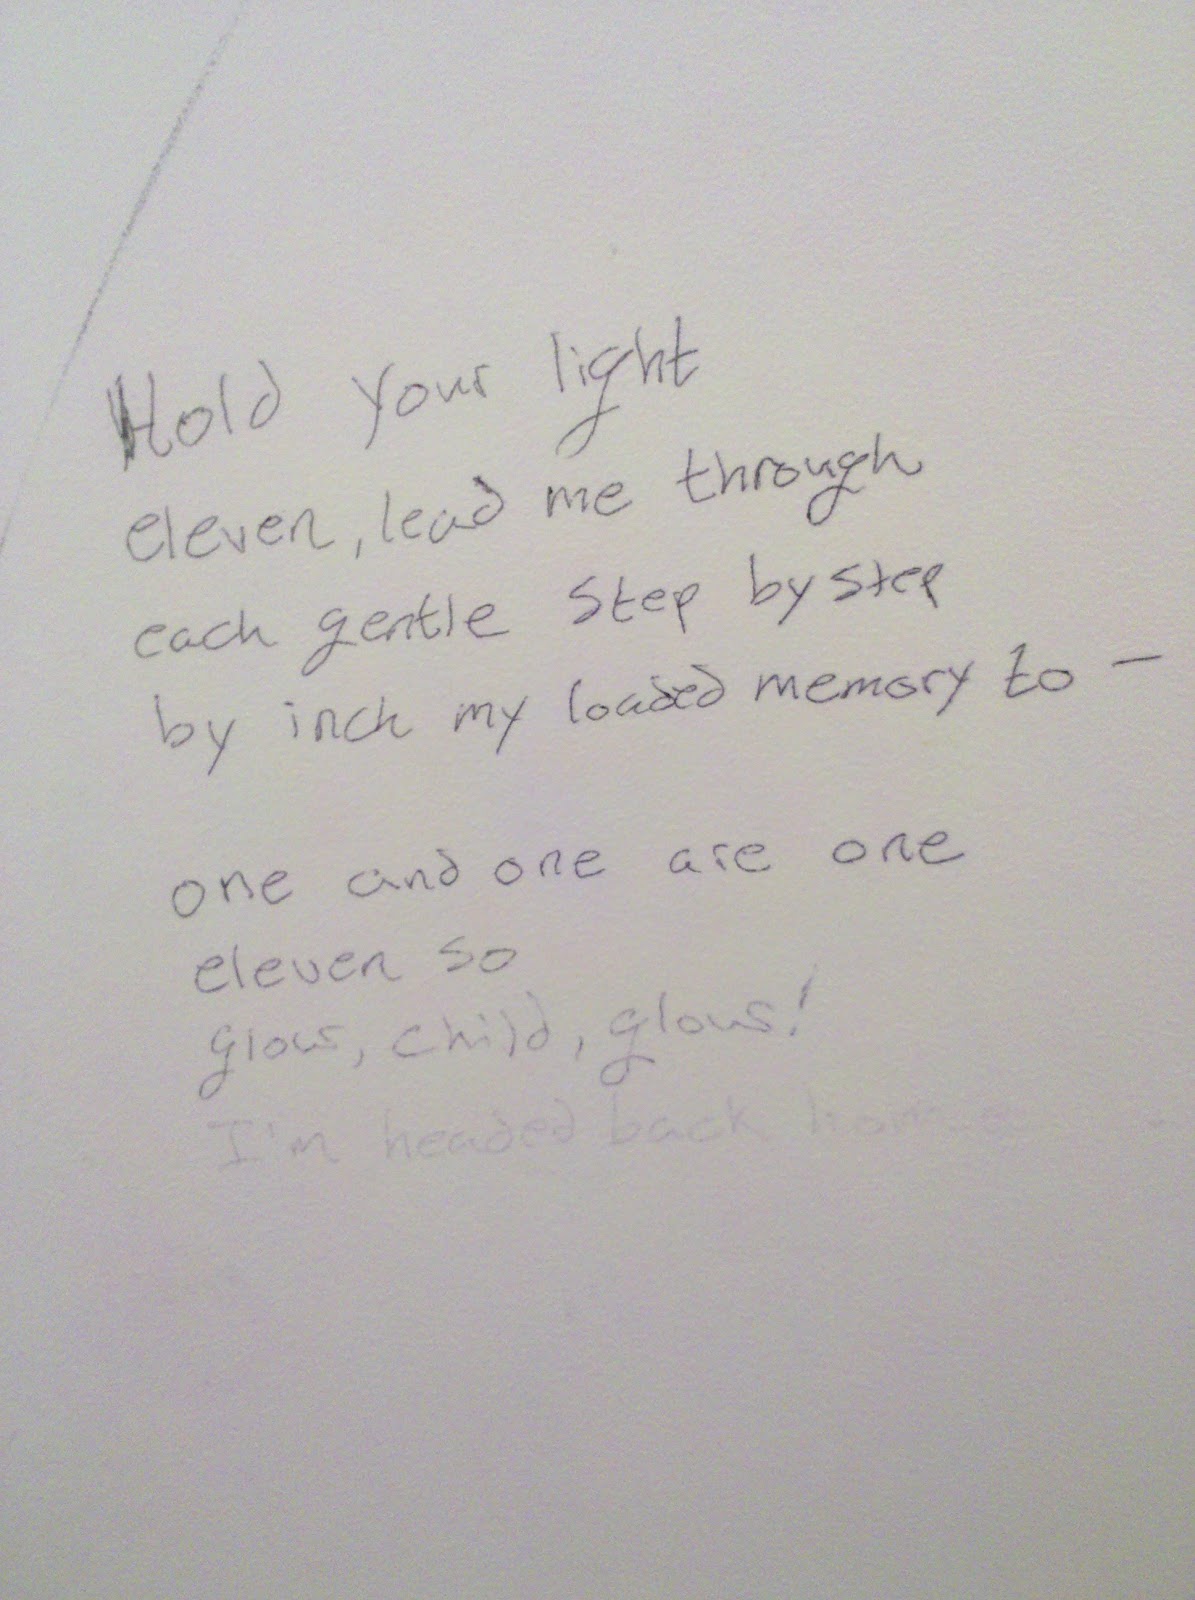 Hold your light
eleven, lead me through
each gentle step by step
by inch my loaded memory to -
one and one are one
eleven so
glow, child, glow!
I'm headed back home